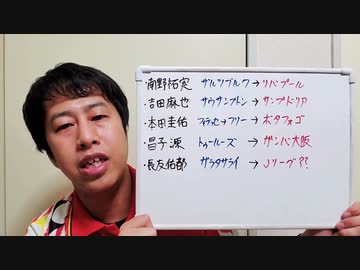 ・南野拓実 ザルツブルク→リバプール
・吉田麻也 サウサンプトン→サンプドリア
・本田圭佑 フィテッセ→フリー→ボタフォゴ
・昌子源 トゥールーズ→ガンバ大阪
・長友佑都 ガラタサライ→Jリーグ??